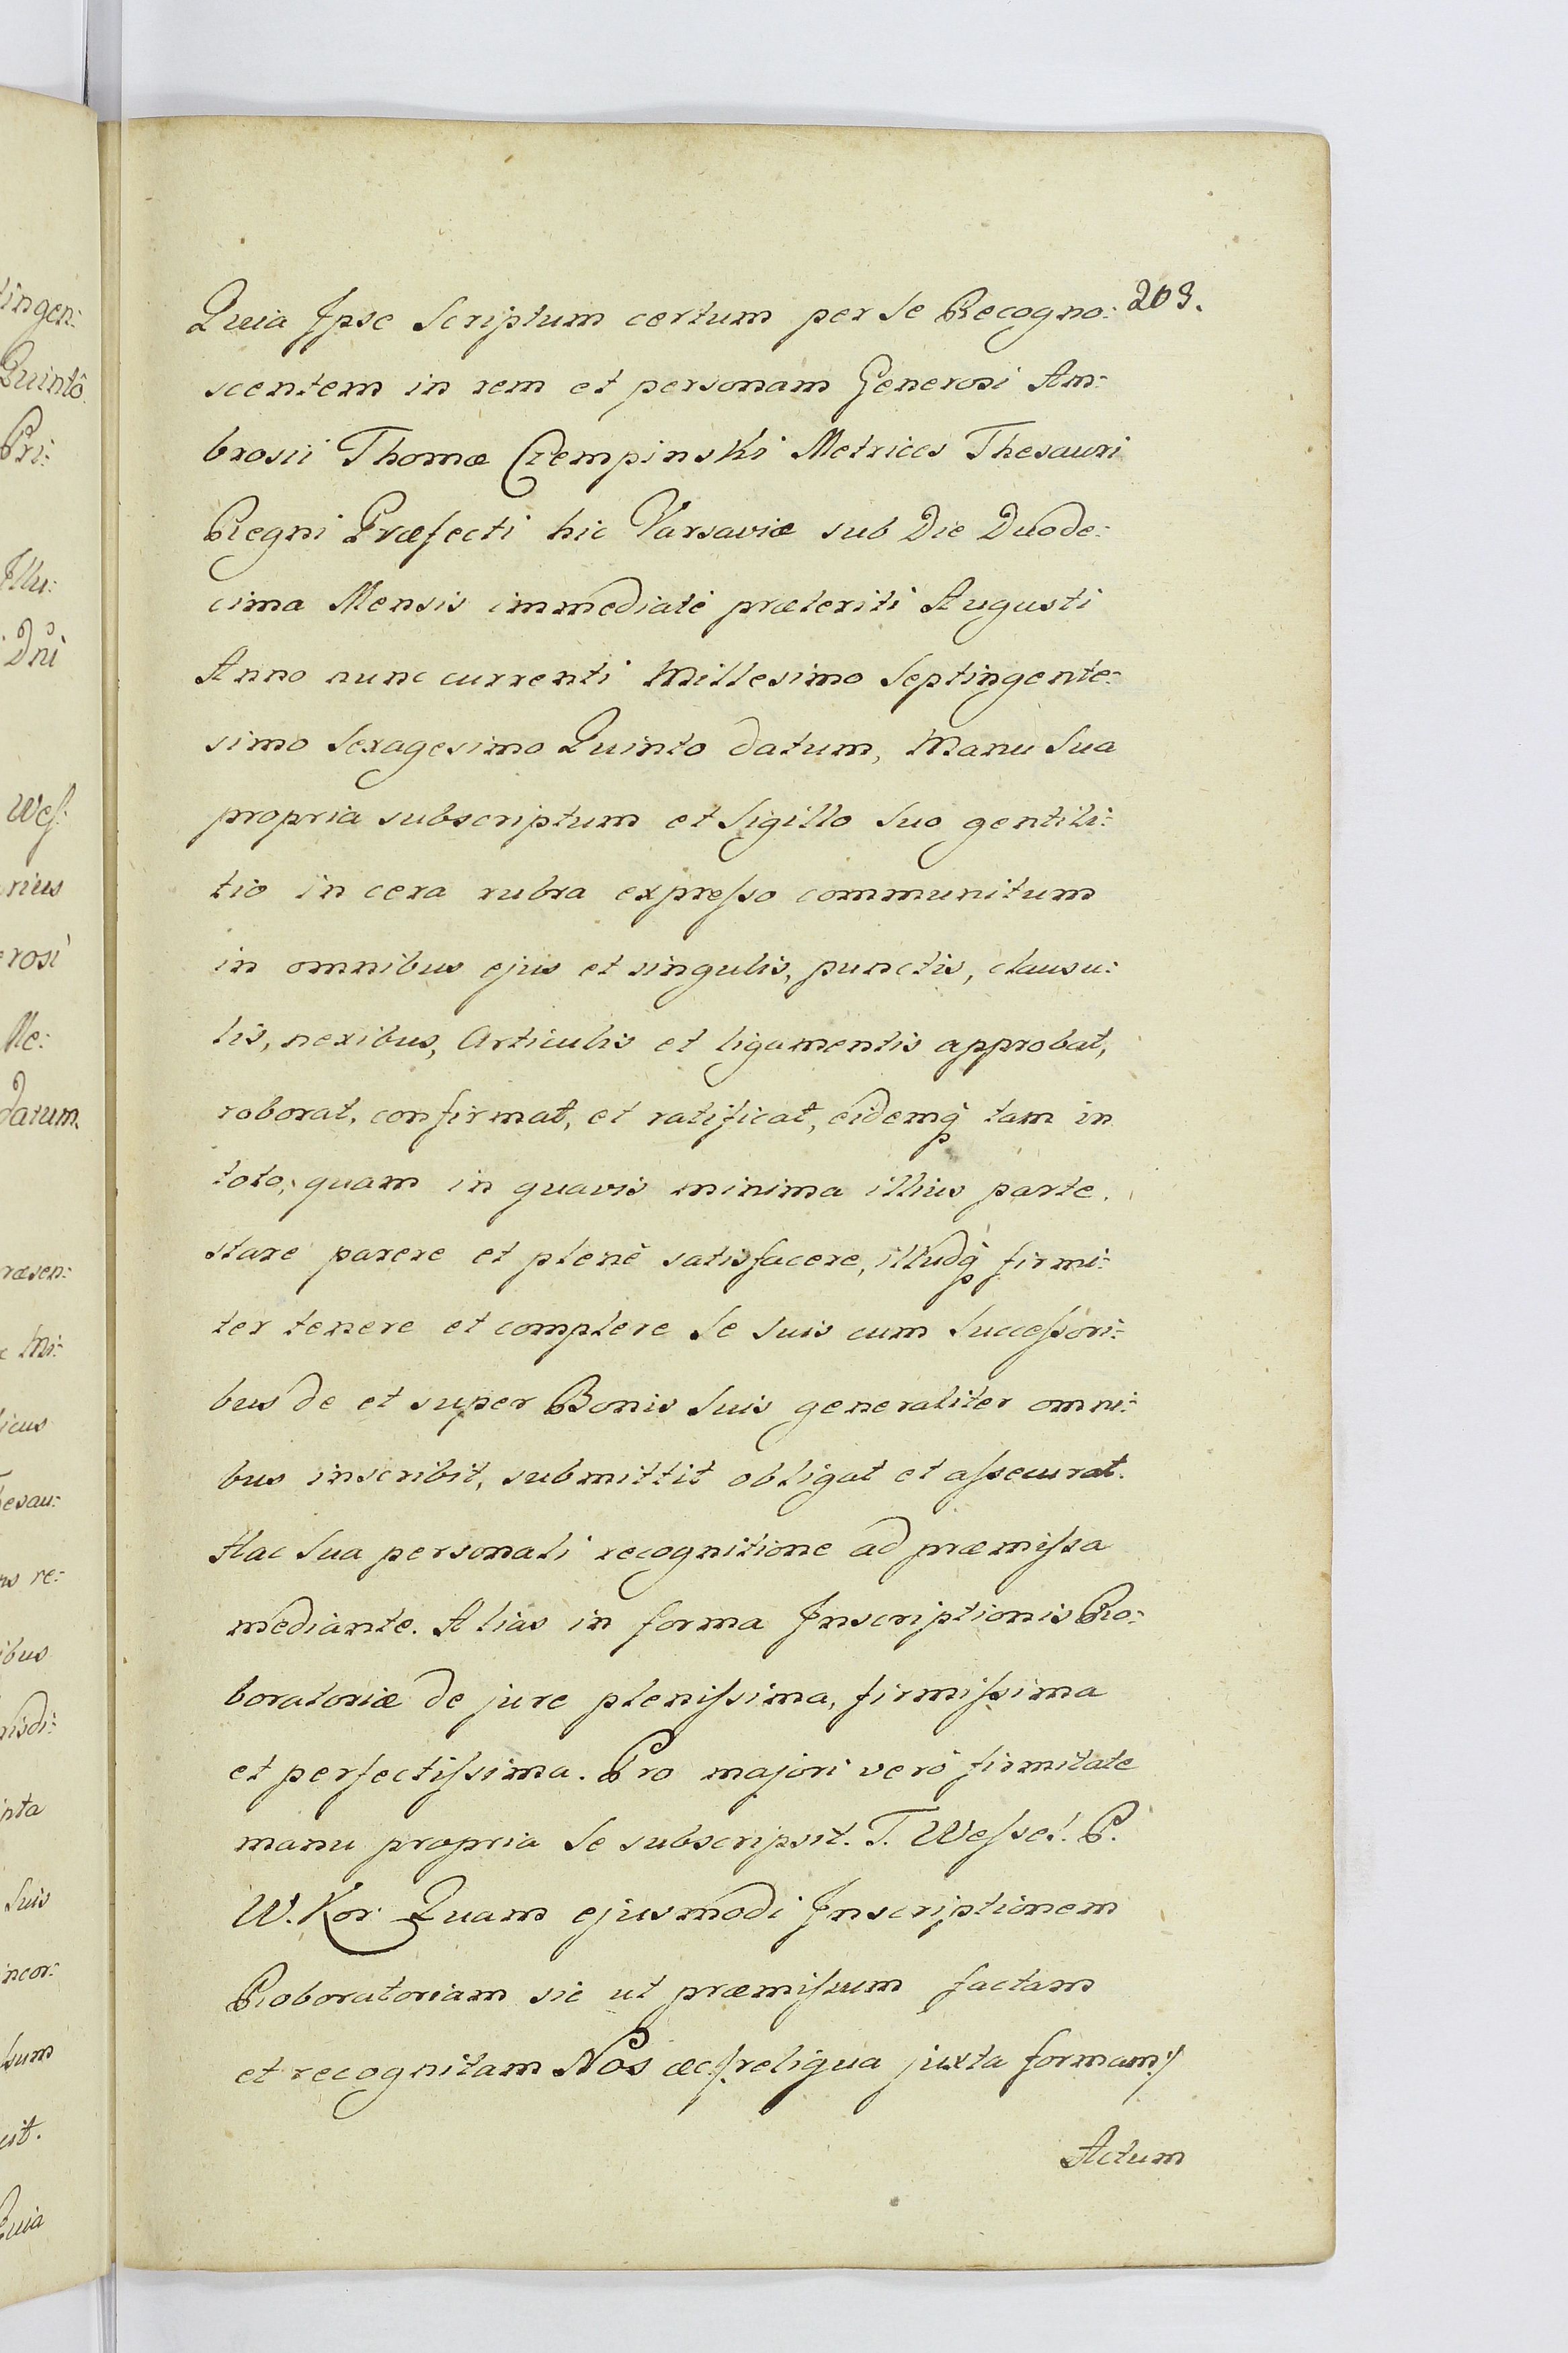 203.
Quia Ipse Scriptum certum per Se Recogno:
scentem in rem et personam Generosi Am:
brosii Thomæ Czempinski Metrices Thesauri
Regni Præfecti hic Varsaviæ sub Die Duode:
cima Mensis immediatè præteriti Augusti
Anno nunc currenti Millesimo Septingente:
simo Sexagesimo Quinto datum, Manu Sua
propria subscriptum et Sigillo Suo gentili:
tio in cera rubra expreſso communitum
in omnibus ejus et singulis, punctis, clausu:
lis, nexibus, Articulis et ligamentis approbat,
roborat, confirmat, et ratificat, eidemq̃ tam in
toto, quam in quavis minima illius parte.
stare parere et plenè satisfacere, illudq̃ firmi:
ter tenere et complere Se Suis cum Succeſsori:
bus de et super Bonis Suis generaliter omni:
bus inscribit, submittit obligat et aſsecurat.
Hac Sua personali recognitione ad præmiſsa
mediante. Alias in forma Inscriptionis Ro:
boratoriæ de jure pleniſsima, firmiſsima
et perfectiſsima. Pro majori verò firmitate
manu propria Se subscripsit. T. Weſsel. P.
W. Kor. Quam ejusmodi Inscriptionem
Roboratoriam sic ut præmiſsum factam
et recognitam Nos æc /:reliqua juxta formam:/
Actum
tingen:
Quintô
Pri:
Illu:
Dnì
Weſ:
rius
erosi
Me:
datum.
ræsen:
Mi:
licus
hesau:
ns re:
ibus
risdi:
ipta
Suis
incor:
ſsum
cit.
Quia